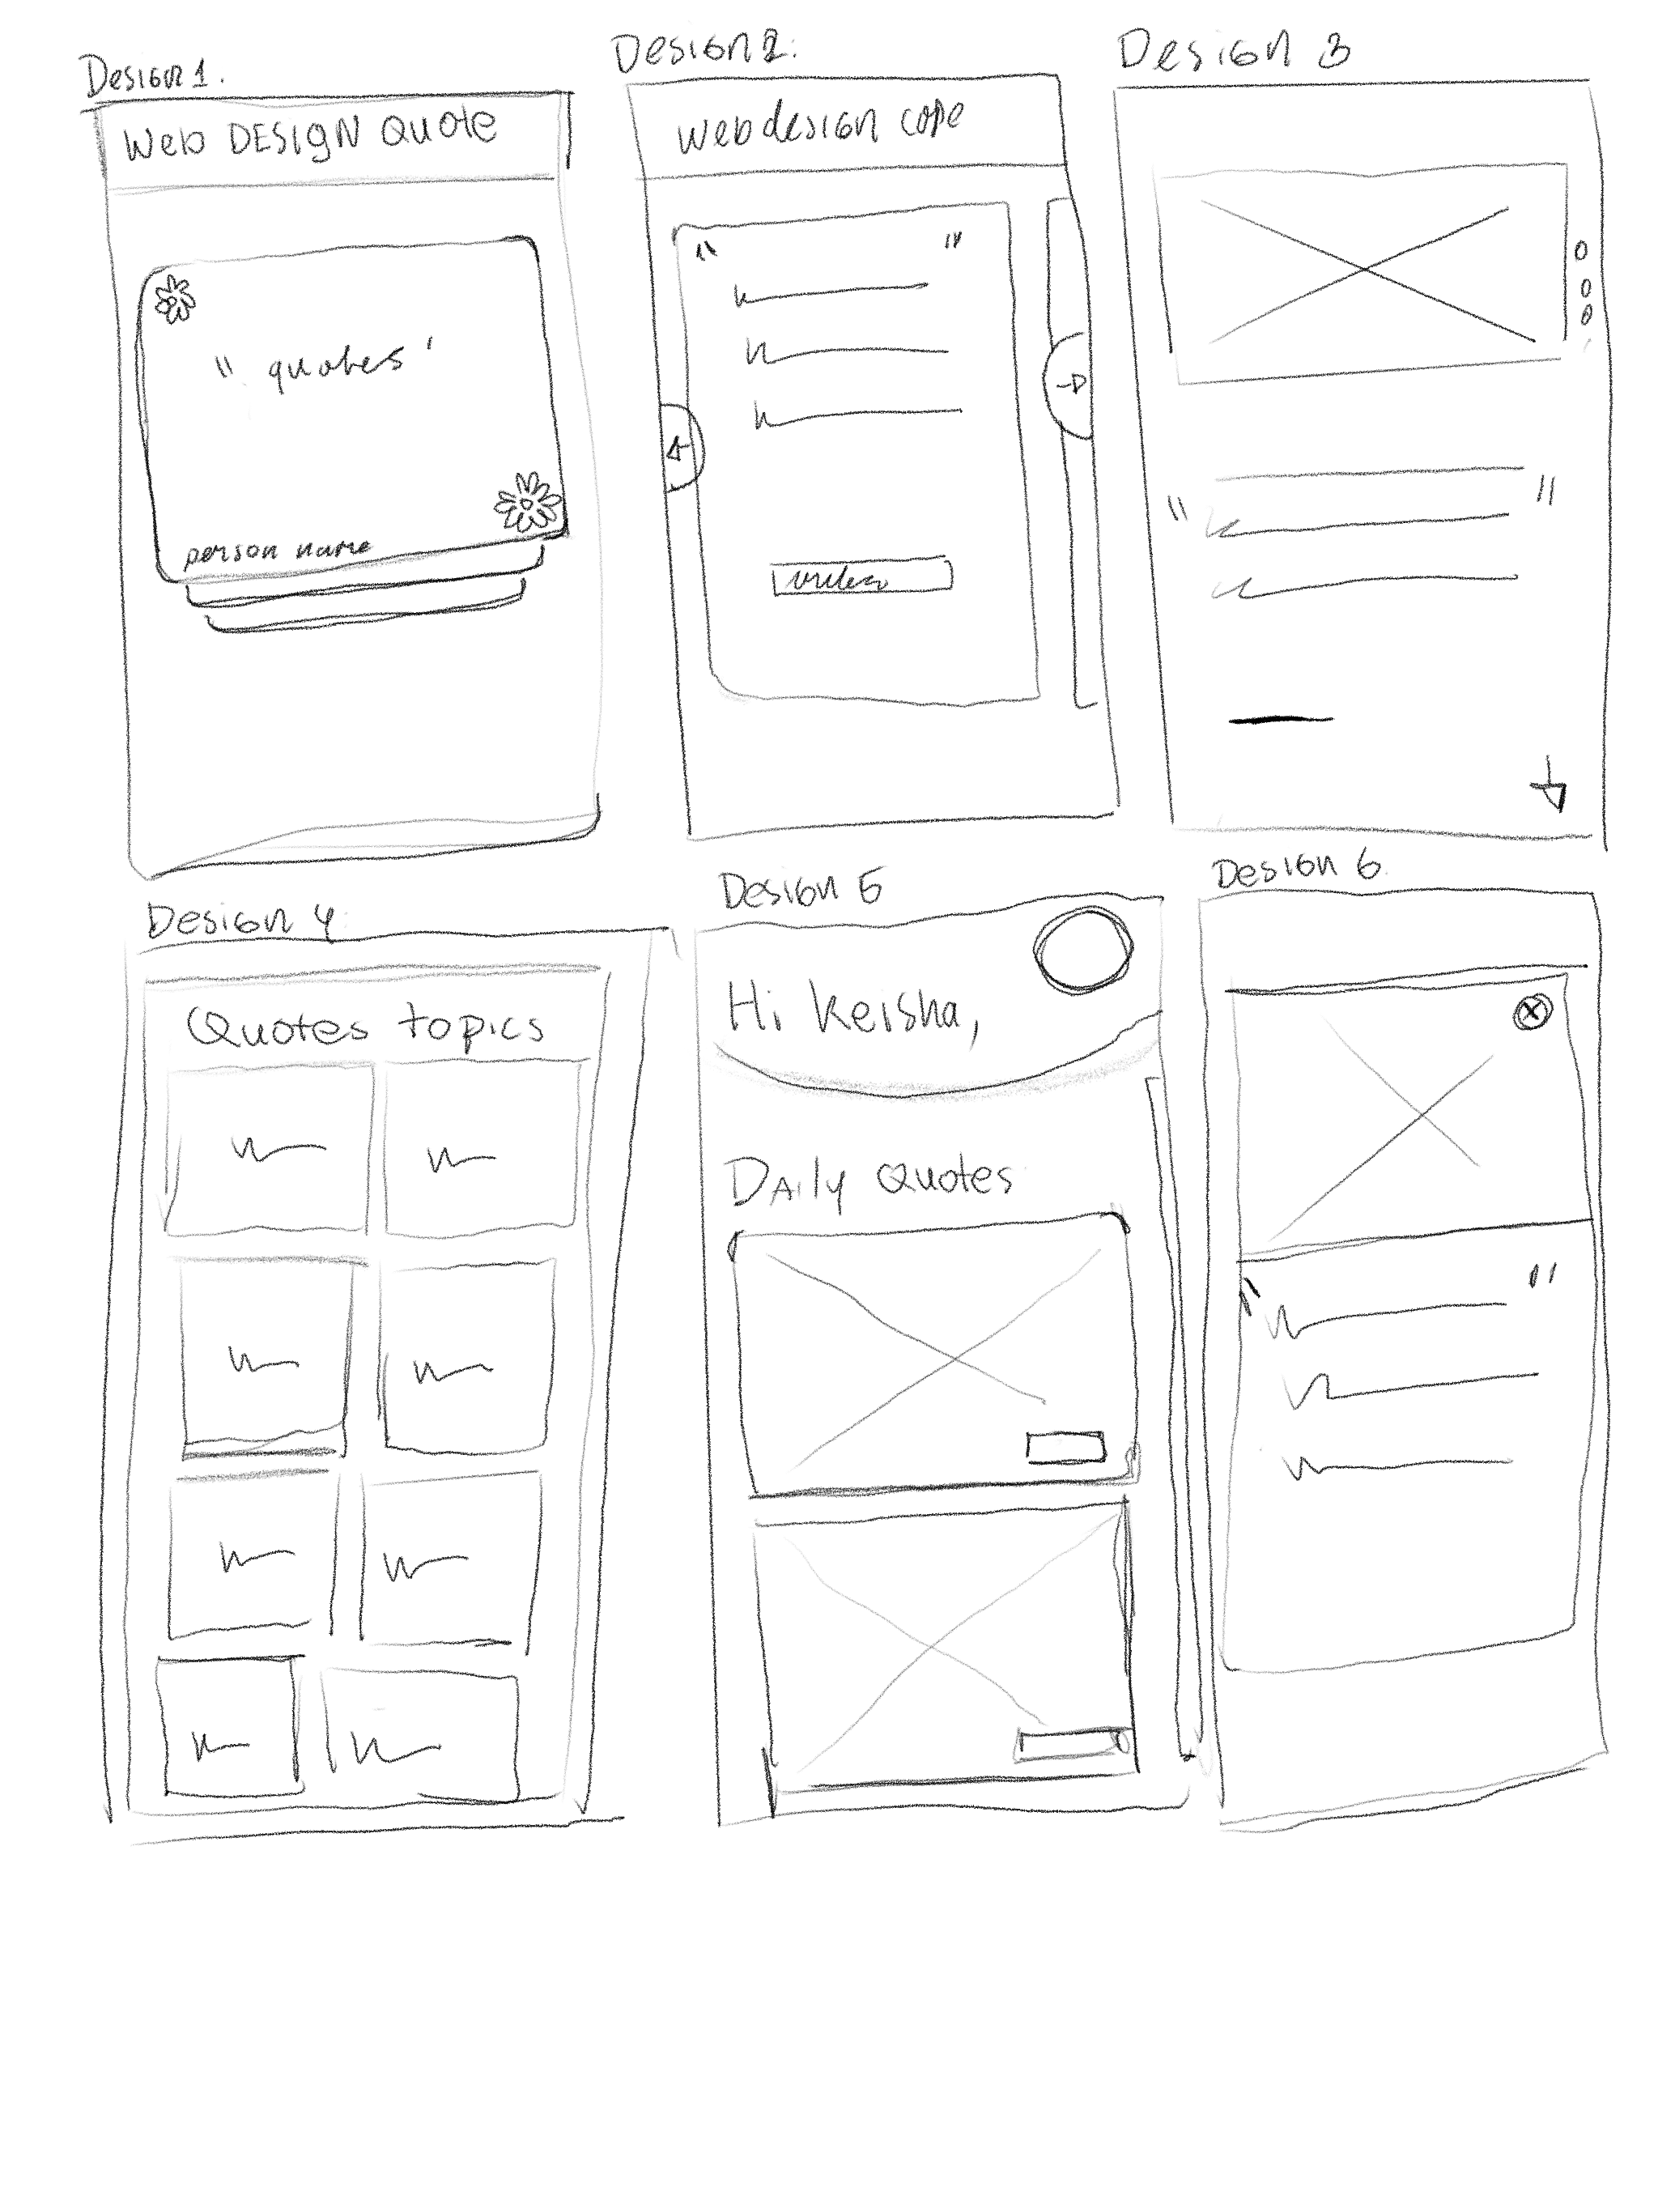 Design 1.
Web DESIGN Quote
" quotes '
person name
Design 2.
Web design cope
" "
Design 3
" "
Design 4.
Quotes topics
Design 5
Hi Keisha,
Daily Quotes
Design 6
" "